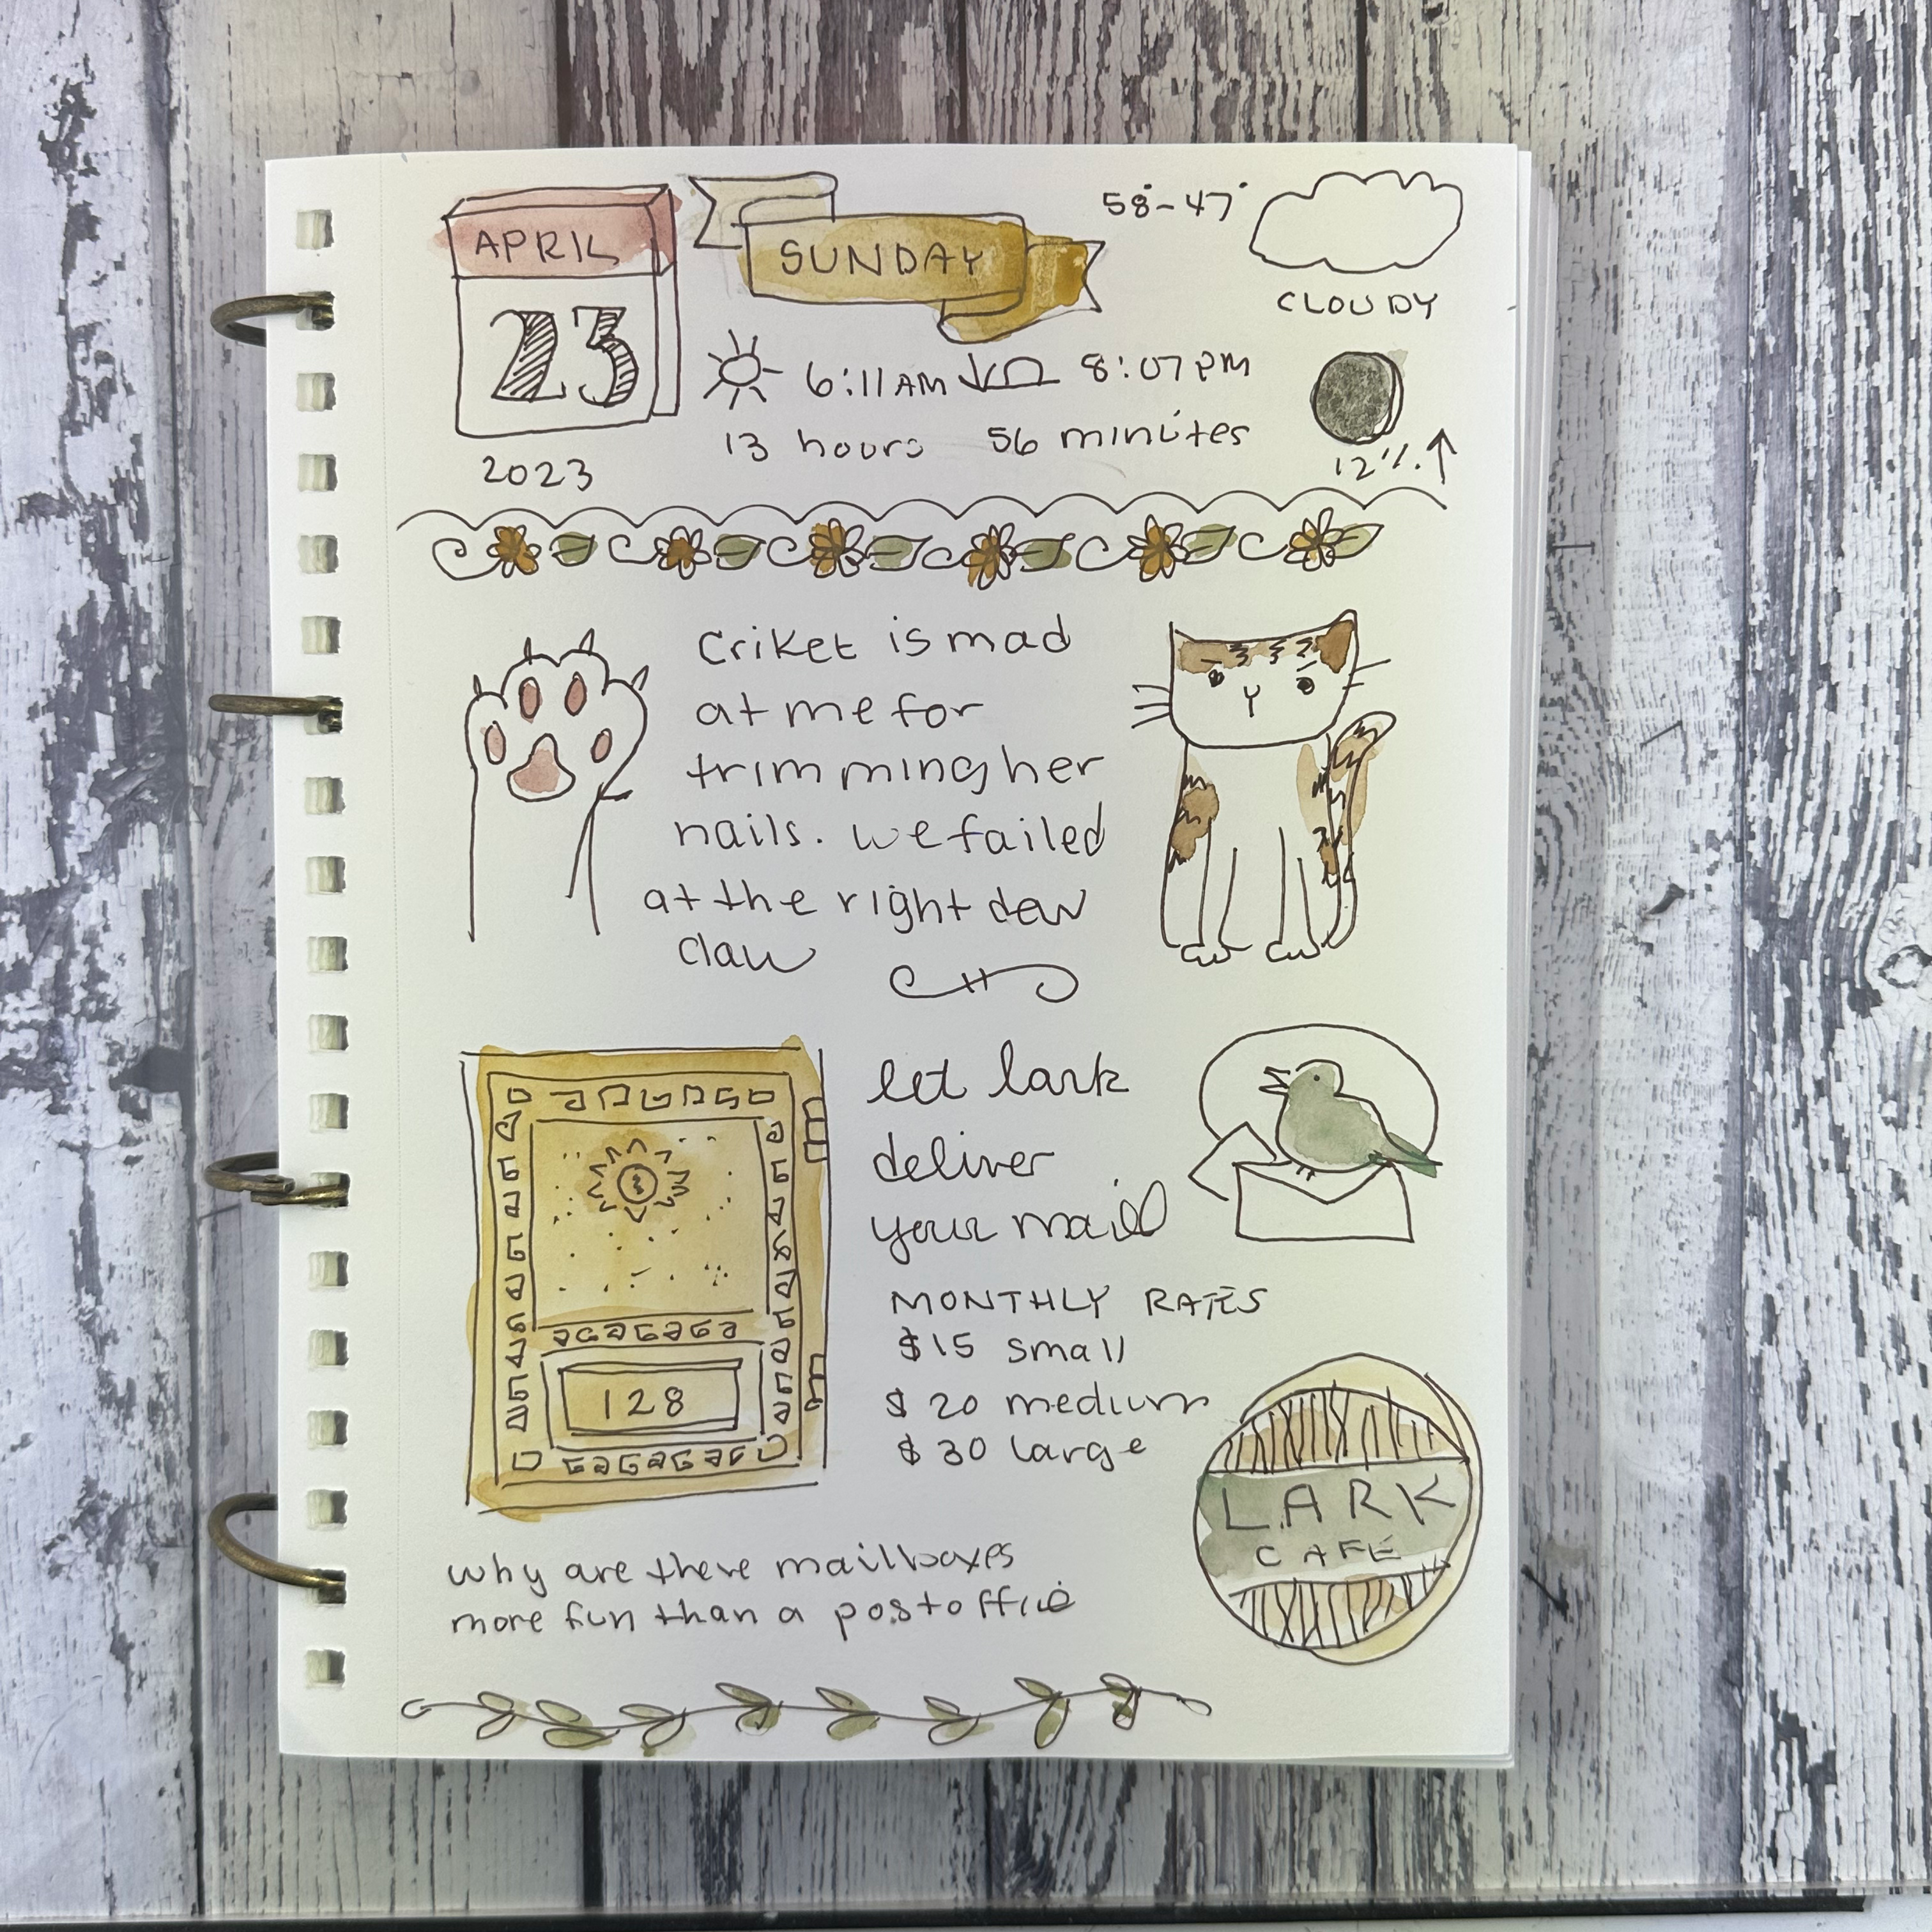 APRIL
23
2023
SUNDAY
58°-47°
CLOUDY
6:11AM 8:07PM
13 hours 56 minutes
12%↑
Criket is mad
at me for
trimming her
nails. we failed
at the right dew
claw
let lark
deliver
your mail
MONTHLY RATES
$15 small
$20 medium
$30 large
128
LARK
CAFÉ
why are these mailboxes
more fun than a postoffice